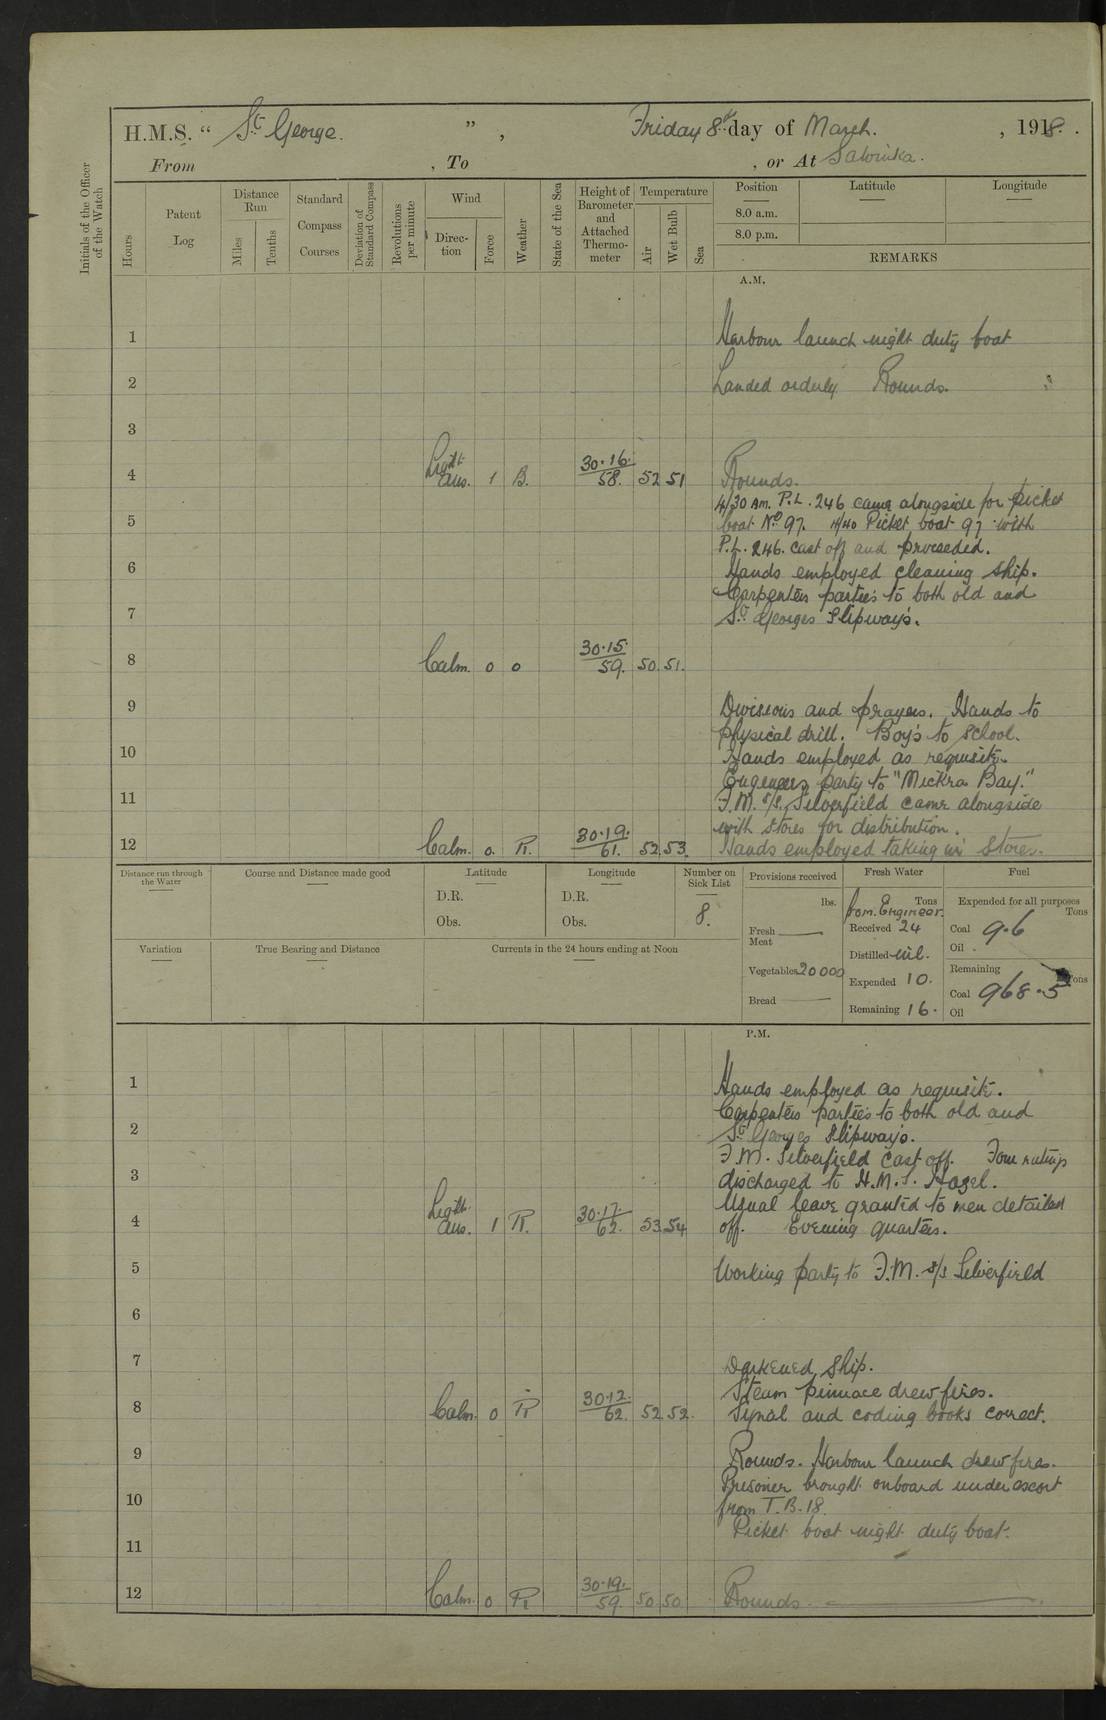 H.M.S. “ St George. ” , Friday 8th day of March. , 1918. .
From , To , or At Salonika.
Initials of the Officer of the Watch
Hours
Patent Log
Distance Run
Miles
Tenths
Standard Compass Courses
Deviation of Standard Compass
Revolutions per minute
Wind
Direction
Force
Weather
State of the Sea
Height of Barometer and Attached Thermometer
Temperature
Air
Wet Bulb
Sea
Position
Latitude
Longitude
8.0 a.m.
8.0 p.m.
REMARKS
A.M.
1 Harbour launch night duty boat
2 Landed orderly Rounds.
3
4 Light Airs. 1 B. 30.16. 58. 52 51 Rounds.
4/30 AM. P.L. 246 came alongside for picket
5 boat No 97. 4/40 Picket boat 97 with
P.L. 246. cast off and proceeded.
6 Hands employed cleaning ship.
Carpenters parties to both old and
7 St Georges Slipways.
8 Calm. 0 0 30.15. 59. 50. 51.
9 Divisions and prayers. Hands to
physical drill. Boy's to School.
10 Hands employed as requisite.
Engeneers party to "Mickra Bay."
11 F.M. s/s. Silverfield came alongside
with stores for distribution.
12 Calm. 0. R. 30.19. 61. 52. 53. Hands employed taking in Stores.
Distance run through the Water
Course and Distance made good
Latitude
D.R.
Obs.
Longitude
D.R.
Obs.
Number on Sick List
8.
Provisions received
lbs.
Fresh Meat
Vegetables 20000
Bread
Fresh Water
Tons
from. Engineer.
Received 24
Distilled nil.
Expended 10.
Remaining 16.
Fuel
Expended for all purposes
Tons
Coal 9.6
Oil
Remaining
Tons
Coal 968.5
Oil
Variation
True Bearing and Distance
Currents in the 24 hours ending at Noon
P.M.
1 Hands employed as requisite.
Carpenters parties to both old and
2 St Georges Slipways.
F.M. Silverfield cast off. Four ratings
3 discharged to H.M.S. Hazel.
Usual leave granted to men detailed
4 Light Airs. 1 R. 30.17. 62. 53 54 off. Evening quarters.
5 Working party to F.M. s/s Silverfield
6
7 Darkened Ship.
Steam pinnace drew fires.
8 Calm. 0 R 30.12. 62. 52 52. Signal and coding books correct.
9 Rounds. Harbour launch drew fires.
Prisoner brought onboard under escort
10 from T.B. 18.
Picket boat night duty boat.
11
12 Calm. 0 R 30.19. 59. 50 50 Rounds